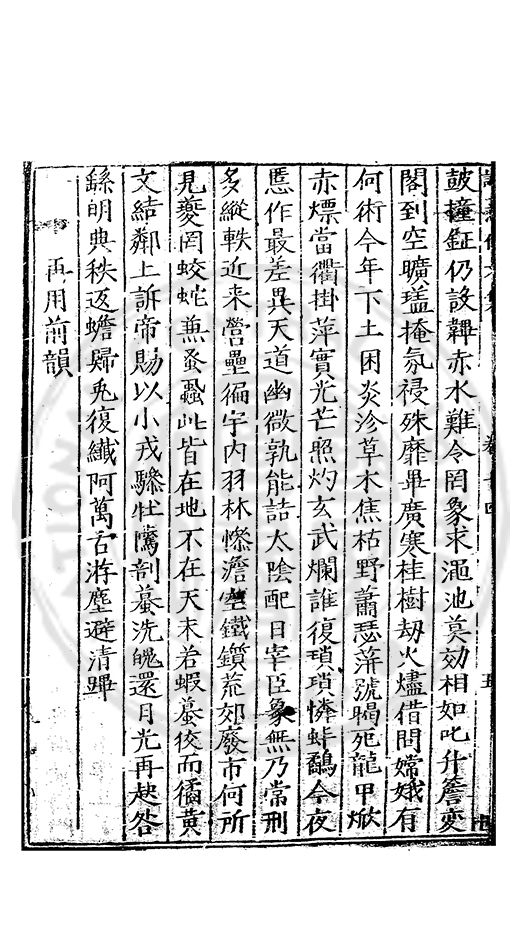 皷撞鉦仍設韠赤水難令罔象求澠池莫効相如叱升簷変
閣到空曠㻽掩氛祲殊靡畢廣寒桂樹刼火燼借問嫦娥有
何術今年下土困炎沴草木焦枯野蕭瑟萍號暍死龍甲焮
赤熛當衢掛萍實光芒照灼玄武爛誰復瑣瑣憐蚌鷸今夜
慝作最差異天道幽微孰能詰太陰配日宰臣象無乃常刑
多縱軼近来營壘徧宇内羽林慘澹空鐵鑕荒郊廢市何所
見夔罔蛟蛇兼蚤蝨此皆在地不在天未若蝦蟇佼而僪黄
文結鄰上訴帝賜以小戎驂牡驈剖蟇洗魄還月光再趂咎
繇明典秩返蟾歸兎復纎阿萬古游塵避清蹕
再用前韻
卷十四
五